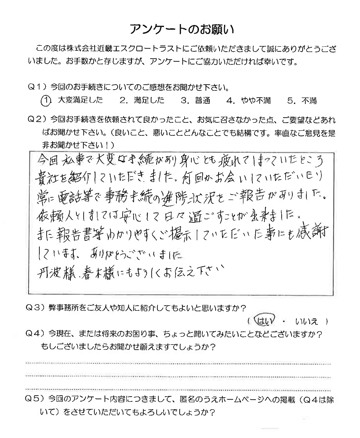 アンケートのお願い
この度は株式会社近畿エスクロートラストにご依頼いただきまして誠にありがとうござ
いました。お手数かと存じますが、アンケートにご協力いただければ幸いです。
Q1）今回のお手続きについてのご感想をお聞かせ下さい。
1．大変満足した　2．満足した　3．普通　4．やや不満　5．不満
Q2）今回お手続きを依頼されて良かったこと、お気に召さなかった点、ご要望などあれ
ばお聞かせ下さい。（良いこと、悪いことどんなことでも結構です。率直なご意見を是
非お聞かせ下さい！）
今回私事で大変な手続があり身心とも疲れてしまっていたところ
貴社を紹介していただきました。何回かお会いしていただいたり
常に電話等で事務手続の進捗状況をご報告がありました。
依頼人としましては安心して日々過ごすことが出来ました。
また報告書等わかりやすくご掲示していただいた事にも感謝
しています。ありがとうございました
丹波様、春木様にもよろしくお伝え下さい
Q3）弊事務所をご友人や知人に紹介してもよいと思いますか？
（はい ・ いいえ ）
Q4）今現在、または将来のお困り事、ちょっと聞いてみたいことなどございますか？
もしございましたらお聞かせ願えますでしょうか？
Q5）今回のアンケート内容につきまして、匿名のうえホームページへの掲載（Q4は除
いて）をさせていただいてもよろしいでしょうか？